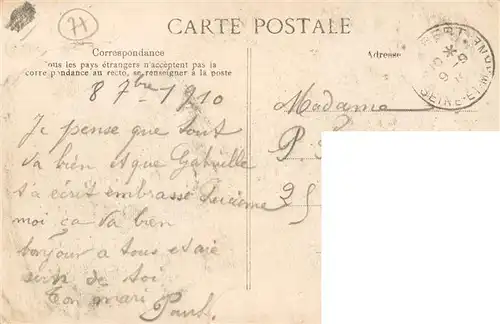 71
CARTE POSTALE
Correspondance
Tous les pays étrangers n'acceptent pas la
correspondance au recto, se renseigner à la poste
Adresse
SEINE-ET-MARNE
8 7bre 1910
Madame
P
25
Je pense que tout
va bien et que Gabrielle
t'a écrit embrasse Lucienne
moi ça va bien
bonjour a tous et aie
soin de toi
Ton mari
Paul